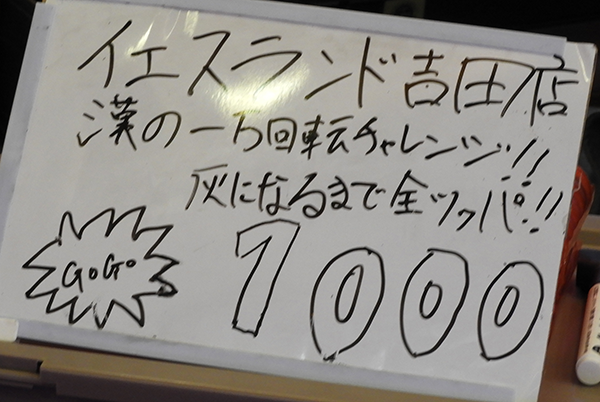 イエスランド吉田店
漢の一万回転チャレンジ!!
灰になるまで全ツッパ!!
GoGo
1000